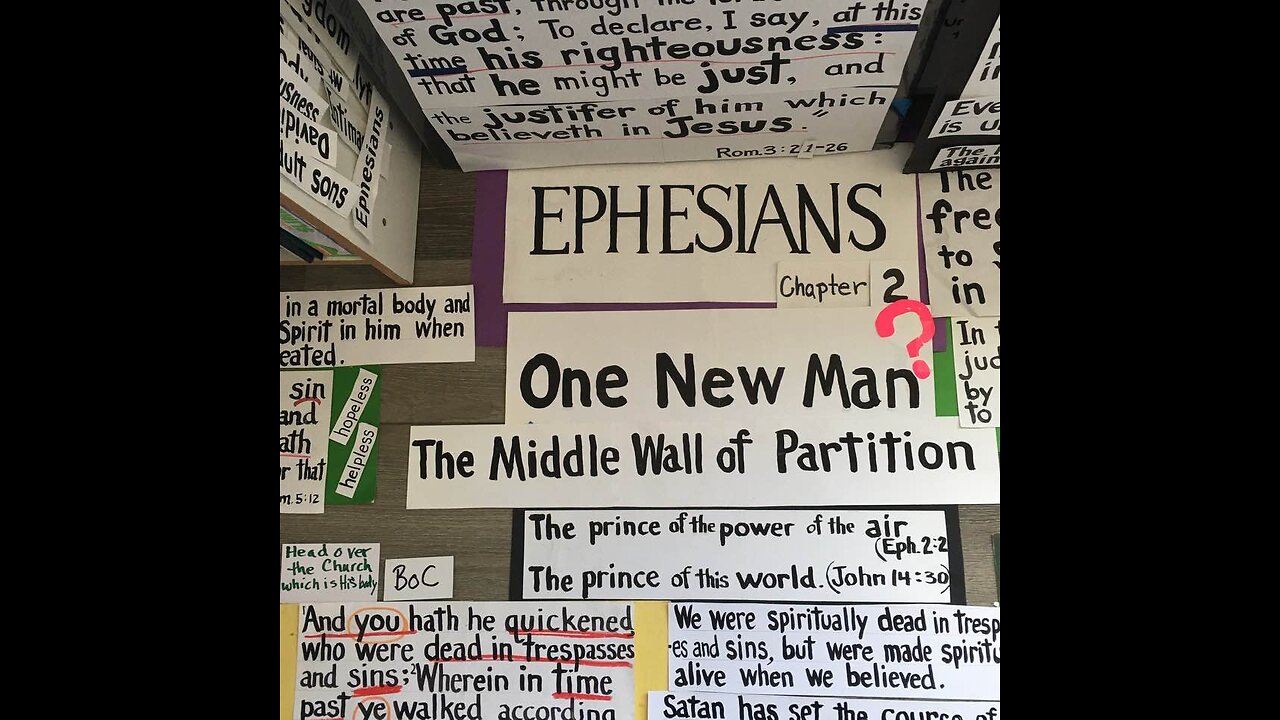 are past, through the
of God; To declare, I say, at this
time his righteousness:
that he might be just, and
the justifer of him which
believeth in Jesus."
Rom. 3:21-26
Davidi
ult sons
Ephesians
Eve
is u
The
again
The
free
to
in
EPHESIANS
Chapter 2
?
in a mortal body and
Spirit in him when
eated.
One New Man
In
jud
by
to
sin
and
ath
r that
m. 5:12
hopeless
helpless
The Middle Wall of Partition
The prince of the power of the air
(Eph. 2:2
The prince of this world. (John 14:30)
Head over
the Church
which is His body
BoC
1And you hath he quickened,
who were dead in trespasses
and sins; 2Wherein in time
past ye walked according
We were spiritually dead in tresp
-es and sins, but were made spiritu
alive when we believed.
Satan has set the course of